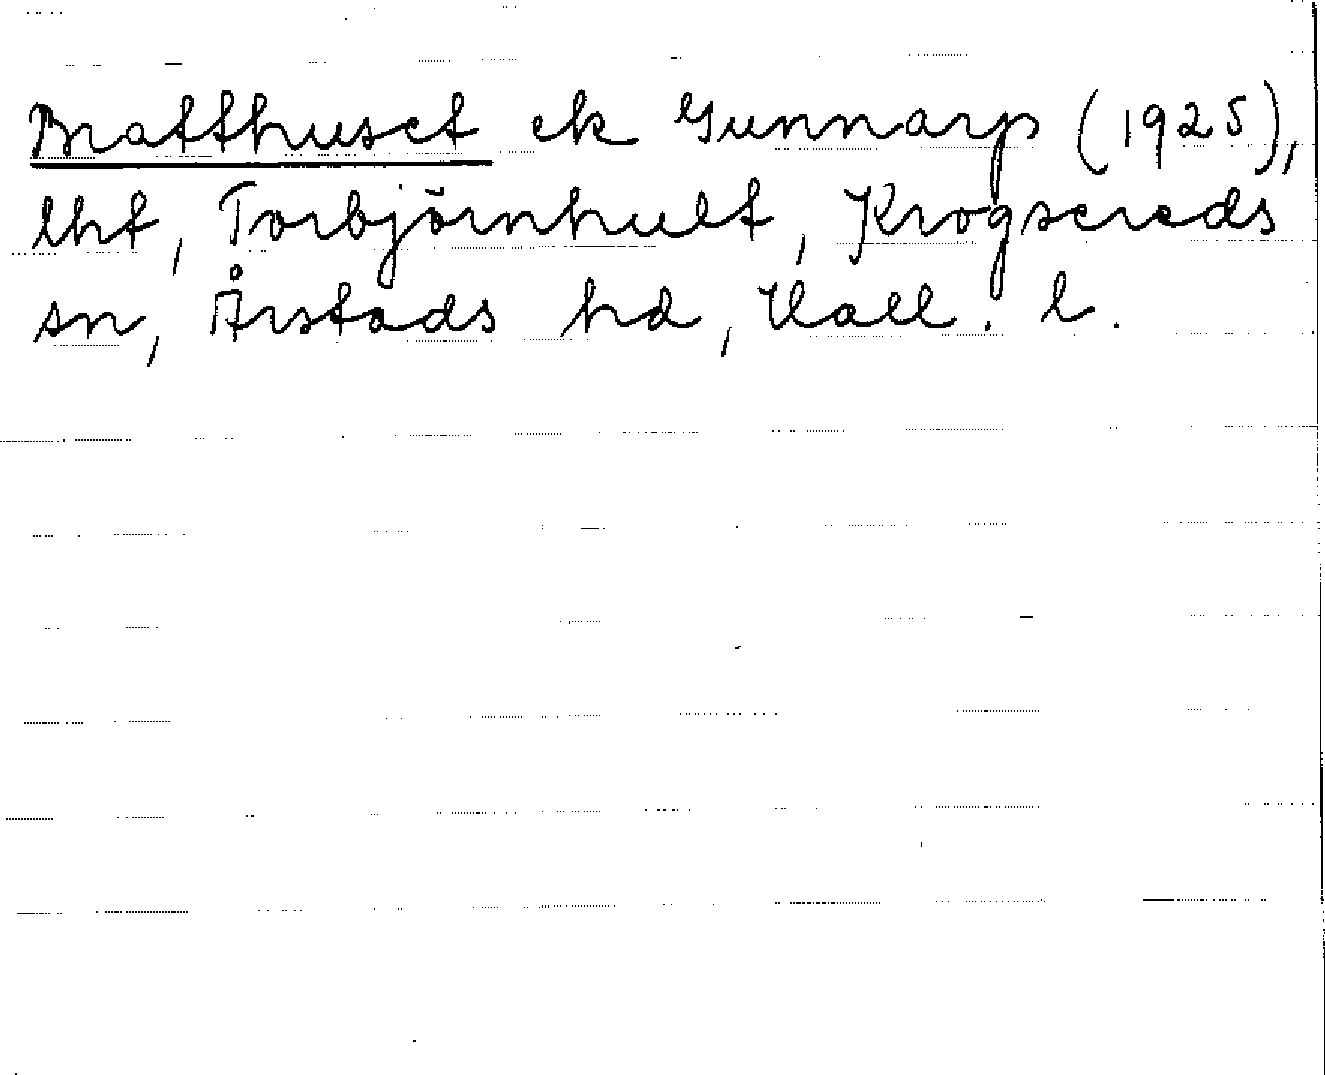 Bratthuset ek Gunnarp (1925),
lht, Torbjörnhult, Krogsereds
sn, Årstads hd, Hall. l.